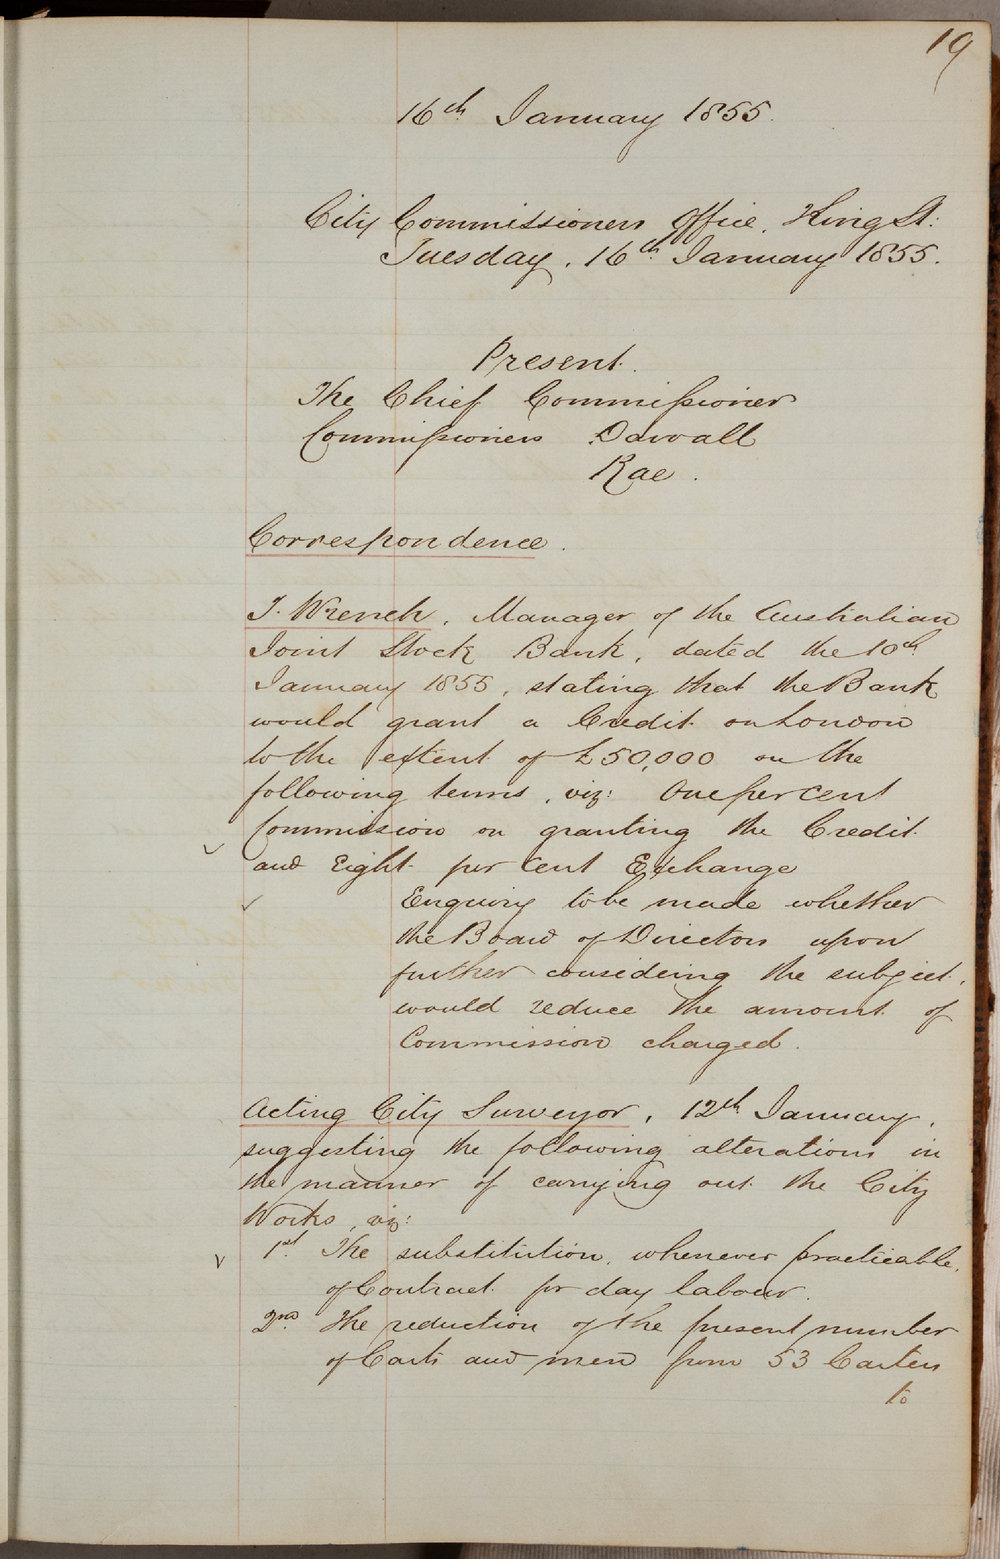 19
16th January 1855.
City Commissioners Office, King St:
Tuesday, 16th January 1855.
Present.
The Chief Commissioner
Commissioners Darvall
Rae.
Correspondence.
T. Wrench, Manager of the Australian
Joint Stock Bank, dated the 10th
January 1855, stating that the Bank
would grant a Credit on London
to the extent of £50,000 on the
following terms, viz: One per cent
Commission on granting the Credit
and Eight per Cent Exchange
Enquiry to be made whether
the Board of Directors upon
further considering the subject,
would reduce the amount of
Commission charged.
Acting City Surveyor, 12th January,
suggesting the following alterations in
the manner of carrying out the City
Works, viz:
1st. The substitution, whenever practicable,
of Contract for day labour.
2nd. The reduction of the present number
of Carts and men from 53 Carters
to